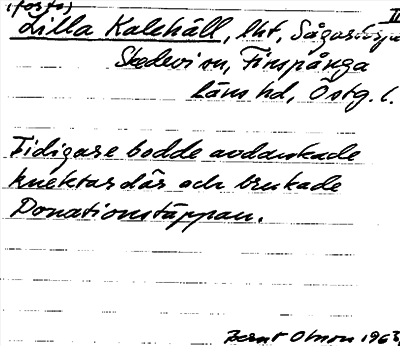 (torp)
Lilla Kalehäll, lht, Sågarstorp
Skedevi sn, Finspånga
läns hd, Östg. l.
Tidigare bodde avdankade
knektar där och brukade
Donationstäppan.
Bernt Olsson 1963